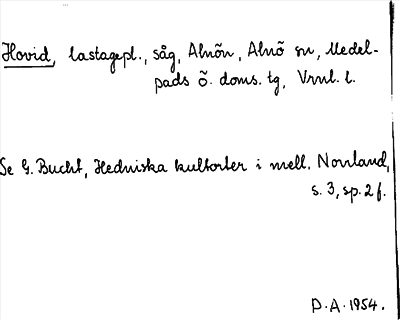 Hovid, lastagepl., såg, Alnön, Alnö sn, Medel-
pads ö. doms. tg, Vrnl. l.
Se G. Bucht, Hedniska kultorter i mell. Norrland,
s. 3, sp. 2 f.
D. A. 1954.